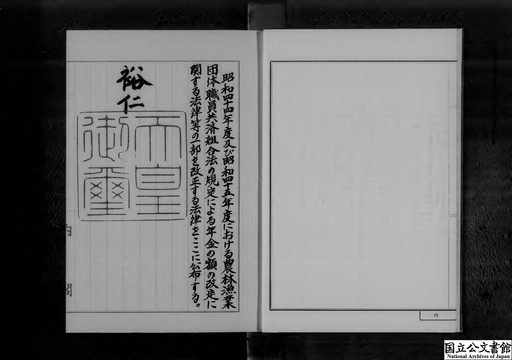 昭和四十四年度及び昭和四十五年度における農林漁業
団体職員共済組合法の規定による年金の額の改定に
関する法律等の一部を改正する法律をここに公布する。
裕仁
天皇
御璽
国立公文書館
National Archives of Japan